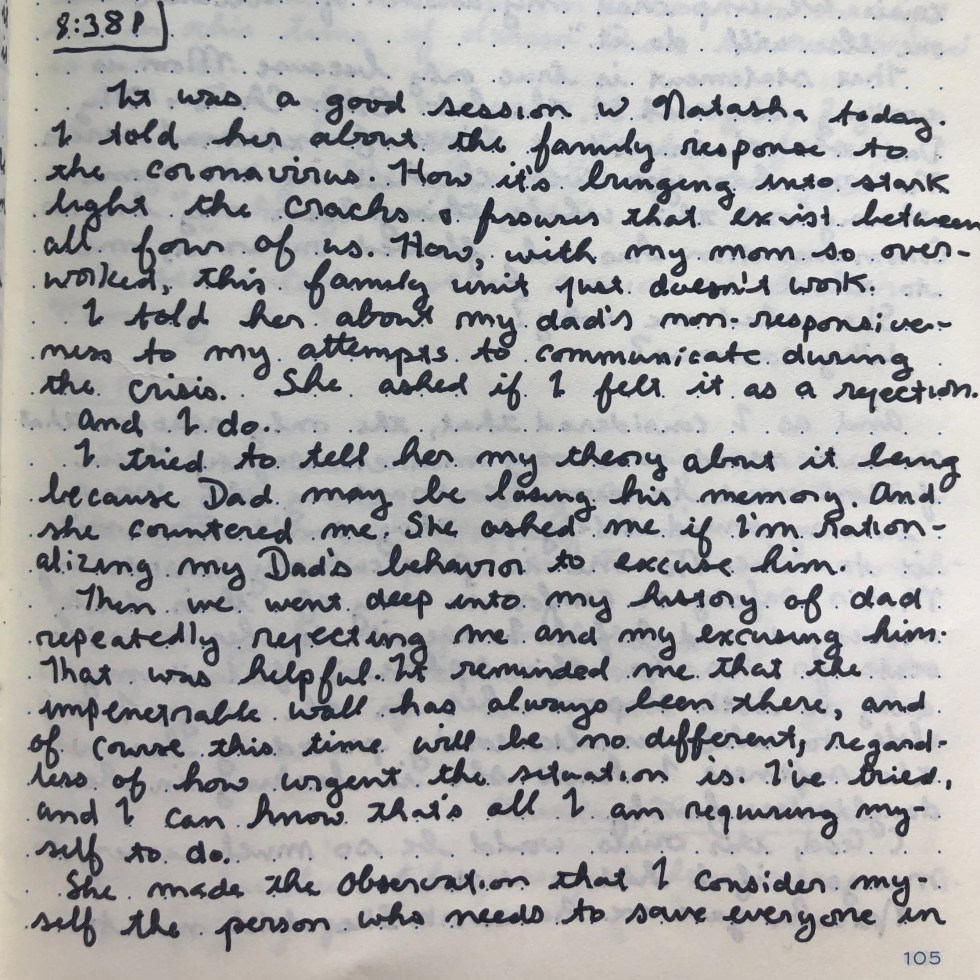 8:38 P
It was a good session w Natasha today.
I told her about the family response to
the coronavirus. How it's bringing into stark
light the cracks & fissures that exist between
all four of us. How, with my mom so over-
worked, this family unit just doesn't work.
I told her about my dad's non-responsive-
ness to my attempts to communicate during
the crisis. She asked if I felt it as a rejection.
And I do.
I tried to tell her my theory about it being
because Dad may be losing his memory. And
she countered me. She asked me if I'm ration-
alizing my Dad's behavior to excuse him.
Then we went deep into my history of dad
repeatedly rejecting me and my excusing him.
That was helpful. It reminded me that the
impenetrable wall has always been there, and
of course this time will be no different, regard-
less of how urgent the situation is. I've tried,
and I can know that's all I am requiring my-
self to do.
She made the observation that I consider my-
self the person who needs to save everyone in
105